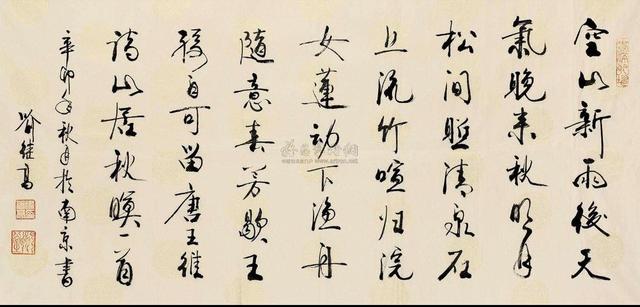 空山新雨後天
氣晚来秋明月
松间照清泉石
上流竹喧归浣
女蓮动下漁舟
隨意春芳歇王
孫自可留唐王維
詩山居秋暝首
辛卯年秋月於南京書
喻继高